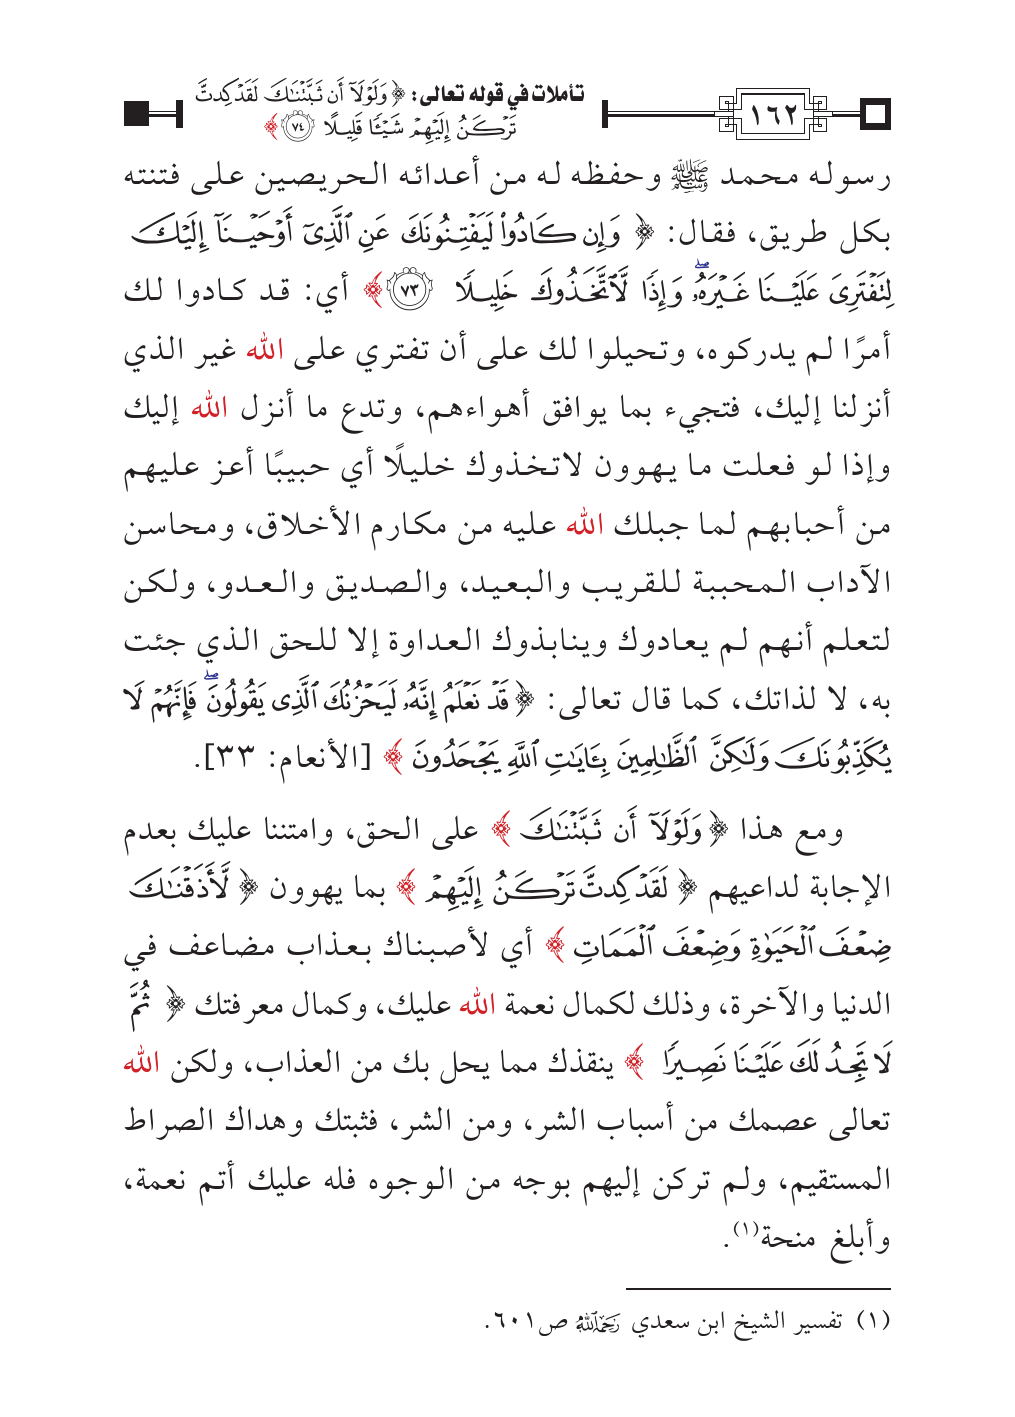 ١٦٢
تأملات في قوله تعالى: ﴿ وَلَوْلَآ أَن ثَبَّتْنَـٰكَ لَقَدْ كِدتَّ
تَرْكَنُ إِلَيْهِمْ شَيْـًٔا قَلِيلًا ﴿٧٤﴾ ﴾
رسوله محمد ﷺ وحفظه له من أعدائه الحريصين على فتنته
بكل طريق، فقال: ﴿ وَإِن كَادُوا۟ لَيَفْتِنُونَكَ عَنِ ٱلَّذِىٓ أَوْحَيْنَآ إِلَيْكَ
لِتَفْتَرِىَ عَلَيْنَا غَيْرَهُۥ ۖ وَإِذًا لَّٱتَّخَذُوكَ خَلِيلًا ﴿٧٣﴾ ﴾ أي: قد كادوا لك
أمرًا لم يدركوه، وتحيلوا لك على أن تفتري على الله غير الذي
أنزلنا إليك، فتجيء بما يوافق أهواءهم، وتدع ما أنزل الله إليك
وإذا لو فعلت ما يهوون لاتخذوك خليلًا أي حبيبًا أعز عليهم
من أحبابهم لما جبلك الله عليه من مكارم الأخلاق، ومحاسن
الآداب المحببة للقريب والبعيد، والصديق والعدو، ولكن
لتعلم أنهم لم يعادوك وينابذوك العداوة إلا للحق الذي جئت
به، لا لذاتك، كما قال تعالى: ﴿ قَدْ نَعْلَمُ إِنَّهُۥ لَيَحْزُنُكَ ٱلَّذِى يَقُولُونَ ۖ فَإِنَّهُمْ لَا
يُكَذِّبُونَكَ وَلَـٰكِنَّ ٱلظَّـٰلِمِينَ بِـَٔايَـٰتِ ٱللَّهِ يَجْحَدُونَ ﴾ [الأنعام: ٣٣].
ومع هذا ﴿ وَلَوْلَآ أَن ثَبَّتْنَـٰكَ ﴾ على الحق، وامتننا عليك بعدم
الإجابة لداعيهم ﴿ لَقَدْ كِدتَّ تَرْكَنُ إِلَيْهِمْ ﴾ بما يهوون ﴿ لَّأَذَقْنَـٰكَ
ضِعْفَ ٱلْحَيَوٰةِ وَضِعْفَ ٱلْمَمَاتِ ﴾ أي لأصبناك بعذاب مضاعف في
الدنيا والآخرة، وذلك لكمال نعمة الله عليك، وكمال معرفتك ﴿ ثُمَّ
لَا تَجِدُ لَكَ عَلَيْنَا نَصِيرًا ﴾ ينقذك مما يحل بك من العذاب، ولكن الله
تعالى عصمك من أسباب الشر، ومن الشر، فثبتك وهداك الصراط
المستقيم، ولم تركن إليهم بوجه من الوجوه فله عليك أتم نعمة،
وأبلغ منحة(١).
(١) تفسير الشيخ ابن سعدي رحمه الله ص٦٠١.